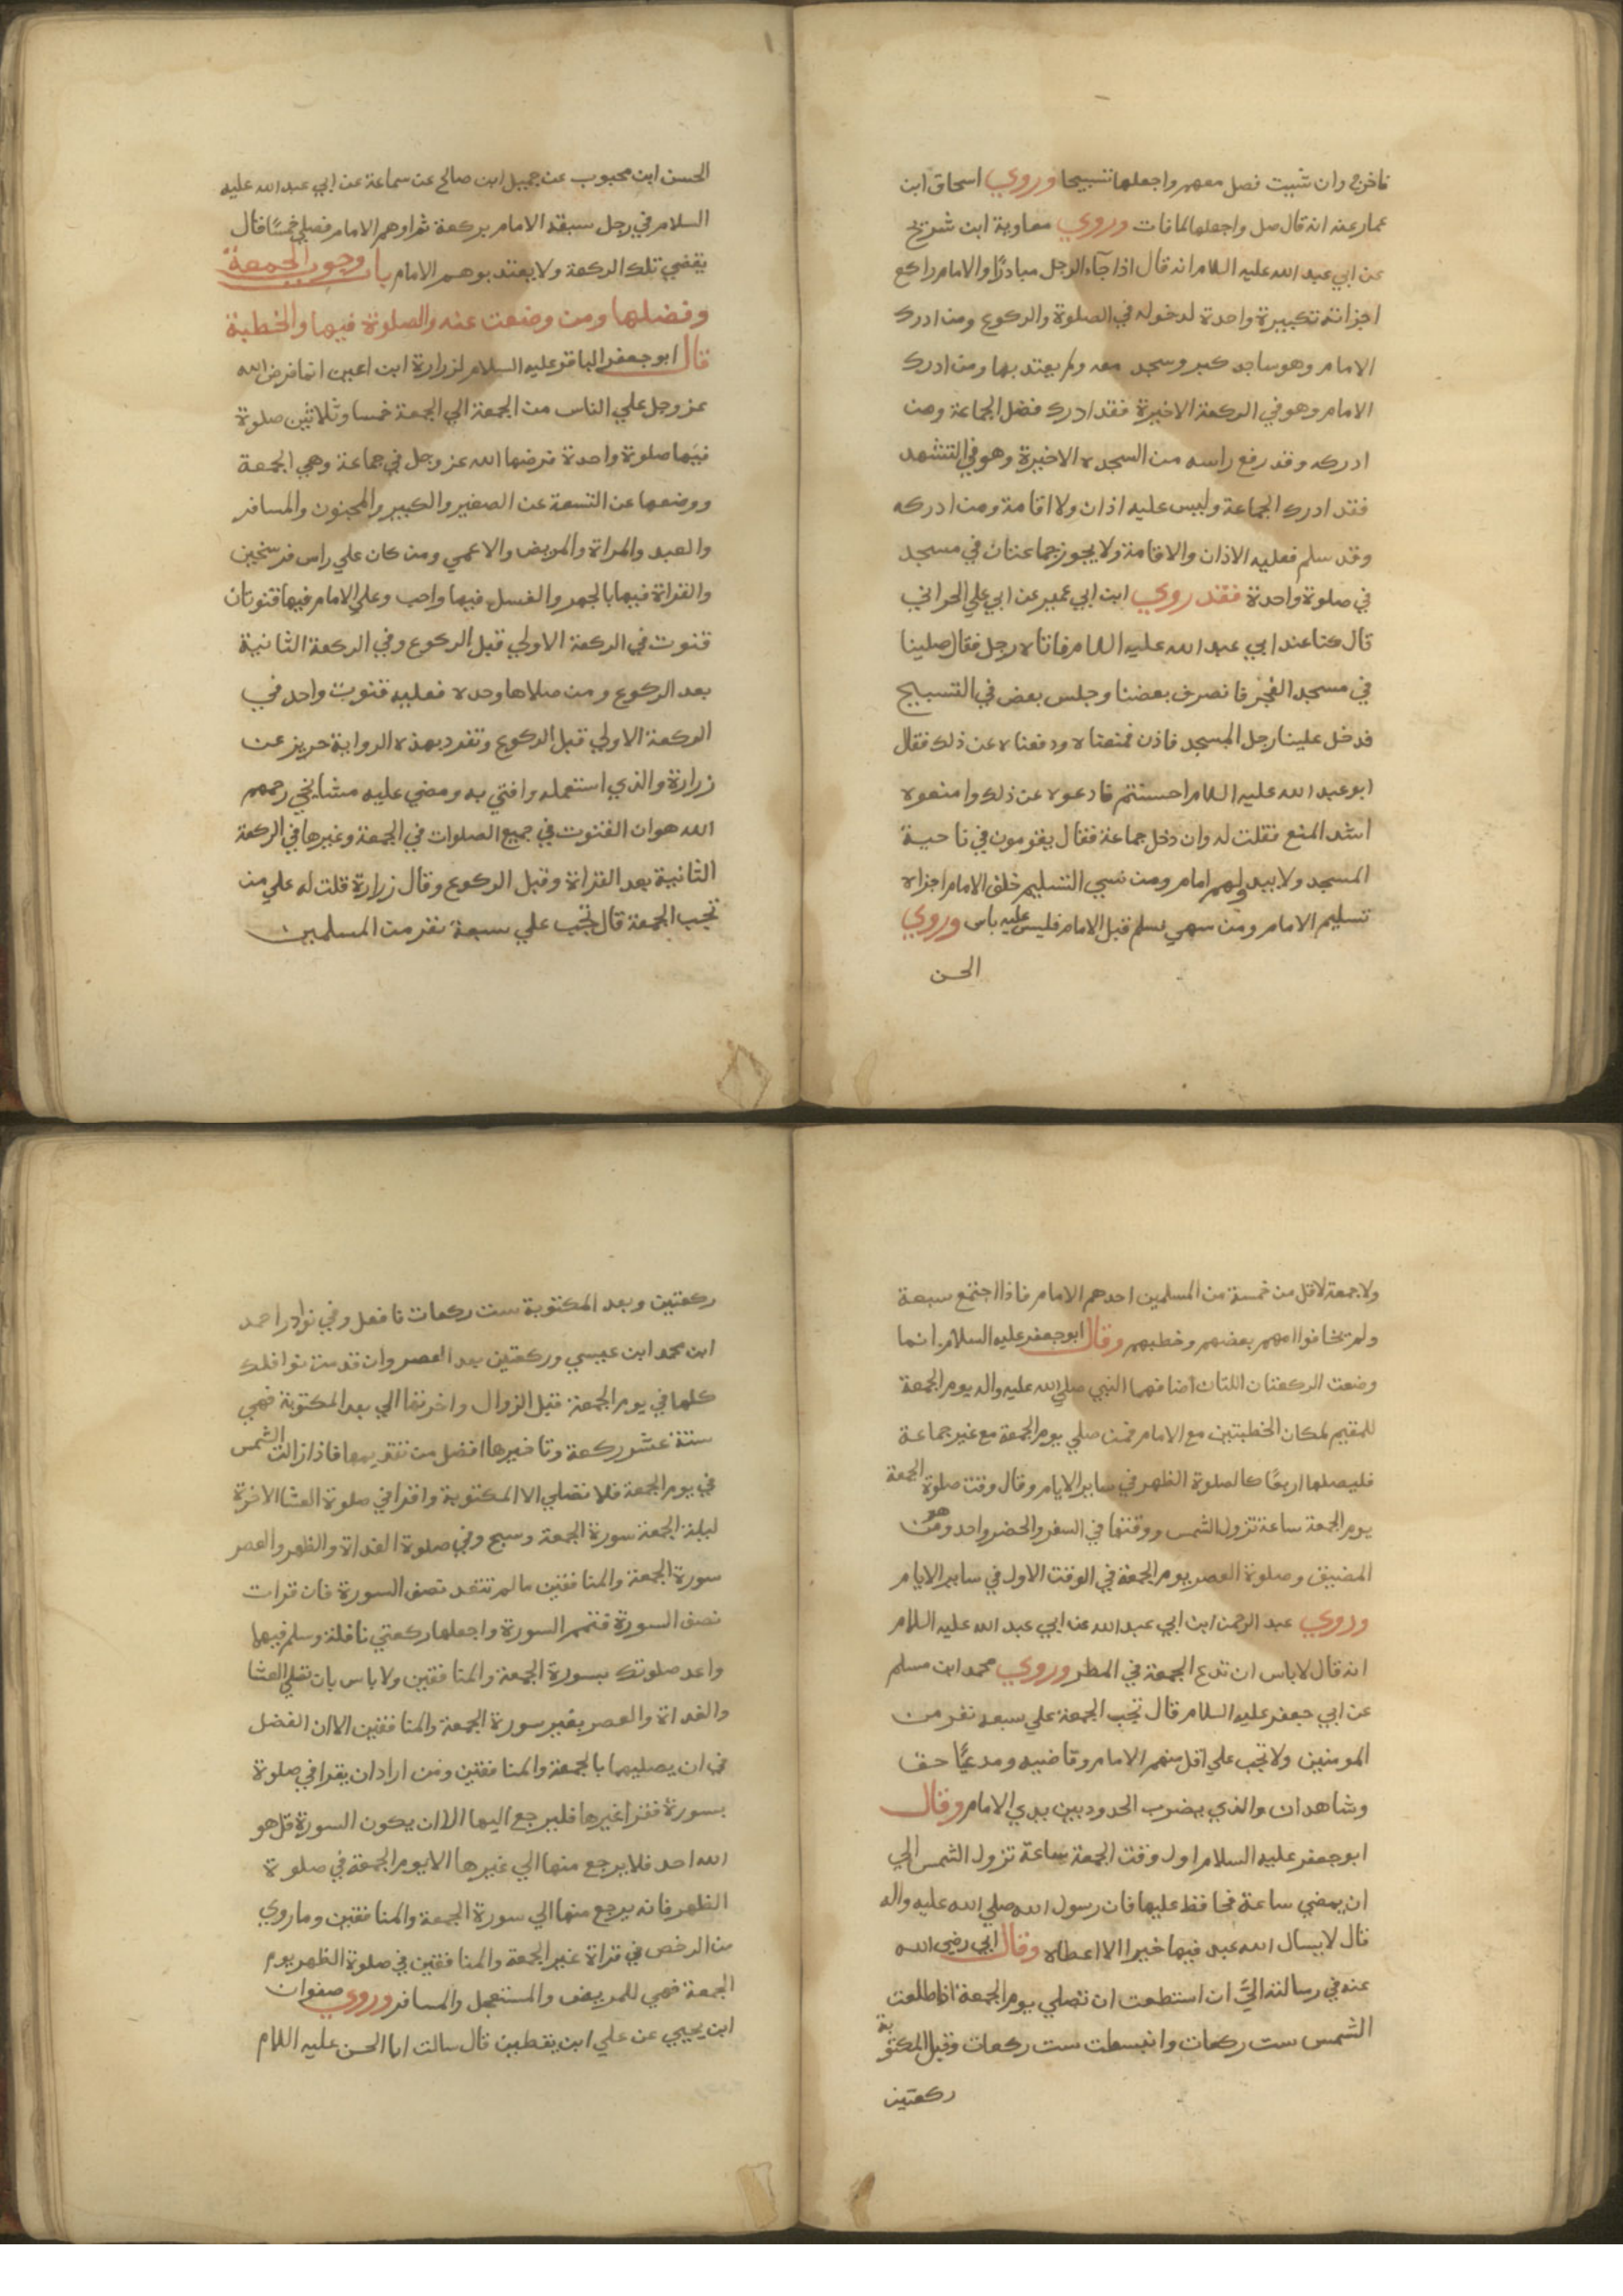 فاخرج وان شيت فصل معهم واجعلها تسبيحا وروي اسحاق ابن
عمار عنه انه قال صل واجعلها لما فات وروي معاوية ابن شريح
عن ابي عبد الله عليه السلام انه قال اذا جآء الرجل مبادرًا والامام راكع
اجزاته تكبيرة واحدة لدخوله في الصلوة والركوع ومن ادرك
الامام وهو ساجد كبر وسجد معه ولم يعتد بها ومن ادرك
الامام وهو في الركعة الاخيرة فقد ادرك فضل الجماعة ومن
ادركه وقد رفع راسه من السجده الاخيرة وهو في التشهد
فقد ادرك الجماعة وليس عليه اذان ولا اقامة ومن ادركه
وقد سلم فعليه الاذان والاقامة ولا يجوز جماعتان في مسجد
في صلوة واحدة فقد روي ابن ابي عمير عن ابي علي الحراني
قال كنا عند ابي عبد الله عليه السلام فاتاه رجل فقال صلينا
في مسجد الفجر فانصرف بعضنا وجلس بعض في التسبيح
فدخل علينا رجل المسجد فاذن فمنعناه ودفعناه عن ذلك فقال
ابو عبد الله عليه السلام احسنتم فادعوه عن ذلك وامنعوه
اشد المنع فقلت له وان دخل جماعة فقال يقومون في ناحية
المسجد ولا يبدو لهم امام ومن نسي التسليم خلف الامام اجزاه
تسليم الامام ومن سهي فسلم قبل الامام فليس عليه باس وروي
الحسن
الحسن ابن محبوب عن جميل ابن صالح عن سماعة عن ابي عبد الله عليه
السلام في رجل سبقه الامام بركعة ثم اوهم الامام فصلي خمسًا قال
يقضي تلك الركعة ولا يعتد بوهم الامام باب وجوب الجمعة
وفضلها ومن وضعت عنه والصلوة فيها والخطبة
قال ابو جعفر الباقر عليه السلام لزرارة ابن اعين انما فرض الله
عز وجل علي الناس من الجمعة الي الجمعة خمسا وثلاثين صلوة
فيها صلوة واحدة فرضها الله عز وجل في جماعة وهي الجمعة
ووضعها عن التسعة عن الصغير والكبير والمجنون والمسافر
والعبد والمراة والمريض والاعمي ومن كان علي راس فرسخين
والقراة فيها بالجهر والغسل فيها واجب وعلي الامام فيها قنوتان
قنوت في الركعة الاولي قبل الركوع وفي الركعة الثانية
بعد الركوع ومن صلاها وحده فعليه قنوت واحد في
الركعة الاولي قبل الركوع وتفرد بهذه الرواية حريز عن
زرارة والذي استعمله وافتي به ومضي عليه مشايخي رحمهم
الله هو ان القنوت في جميع الصلوات في الجمعة وغيرها في الركعة
الثانية بعد القراة وقبل الركوع وقال زرارة قلت له علي من
تجب الجمعة قال تجب علي سبعة نفر من المسلمين
ولا جمعة لاقل من خمسة من المسلمين احدهم الامام فاذا اجتمع سبعة
ولم يخافوا امهم بعضهم وخطبهم وقال ابو جعفر عليه السلام انما
وضعت الركعتان اللتان اضافهما النبي صلي الله عليه واله يوم الجمعة
للمقيم لمكان الخطبتين مع الامام فمن صلي يوم الجمعة مع غير جماعة
فليصلها اربعًا كالصلوة الظهر في ساير الايام وقال وقت صلوة الجمعة
يوم الجمعة ساعة تزول الشمس ووقتها في السفر والحضر واحد وهو من
المضيق وصلوة العصر يوم الجمعة في الوقت الاول في ساير الايام
وروي عبد الرحمن ابن ابي عبد الله عن ابي عبد الله عليه السلام
انه قال لا باس ان تدع الجمعة في المطر وروي محمد ابن مسلم
عن ابي جعفر عليه السلام قال تجب الجمعة علي سبعه نفر من
المومنين ولا تجب علي اقل منهم الامام وقاضيه ومدعيًا حق
وشاهدان والذي يضرب الحدود بين يدي الامام وقال
ابو جعفر عليه السلام اول وقت الجمعة ساعة تزول الشمس الي
ان يمضي ساعة فحافظ عليها فان رسول الله صلي الله عليه واله
قال لا يسال الله عبد فيها خيرا الا اعطاه وقال ابي رضي الله
عنه في رسالته اليَّ ان استطعت ان تصلي يوم الجمعة اذا طلعت
الشمس ست ركعات وانبسطت ست ركعات وقبل المكتوبة
ركعتين
ركعتين وبعد المكتوبة ست ركعات فافعل وفي نوادر احمد
ابن محمد ابن عيسي وركعتين بعد العصر وان قدمت نوافلك
كلها في يوم الجمعة قبل الزوال واخرتها الي بعد المكتوبة فهي
ستة عشر ركعة وتاخيرها افضل من تقديمها فاذا زالت الشمس
في يوم الجمعة فلا تصلي الا المكتوبة واقرا في صلوة العشا الاخرة
ليلة الجمعة سورة الجمعة وسبح وفي صلوة الغداة والظهر والعصر
سورة الجمعة والمنافقين ما لم تتعد نصف السورة فان قرات
نصف السورة فتمم السورة واجعلها ركعتي نافلة وسلم فيهما
واعد صلوتك بسورة الجمعة والمنافقين ولا باس بان تصلي العشا
والغداة والعصر بغير سورة الجمعة والمنافقين الا ان الفضل
في ان يصليها بالجمعة والمنافقين ومن اراد ان يقرا في صلوة
بسورة فقرا غيرها فليرجع اليها الا ان يكون السورة قل هو
الله احد فلا يرجع منها الي غيرها الا يوم الجمعة في صلوة
الظهر فانه يرجع منها الي سورة الجمعة والمنافقين وما روي
من الرخص في قراة غير الجمعة والمنافقين في صلوة الظهر يوم
الجمعة فهي للمريض والمستعجل والمسافر وروي صفوان
ابن يحيي عن علي ابن يقطين قال سالت ابا الحسن عليه السلام